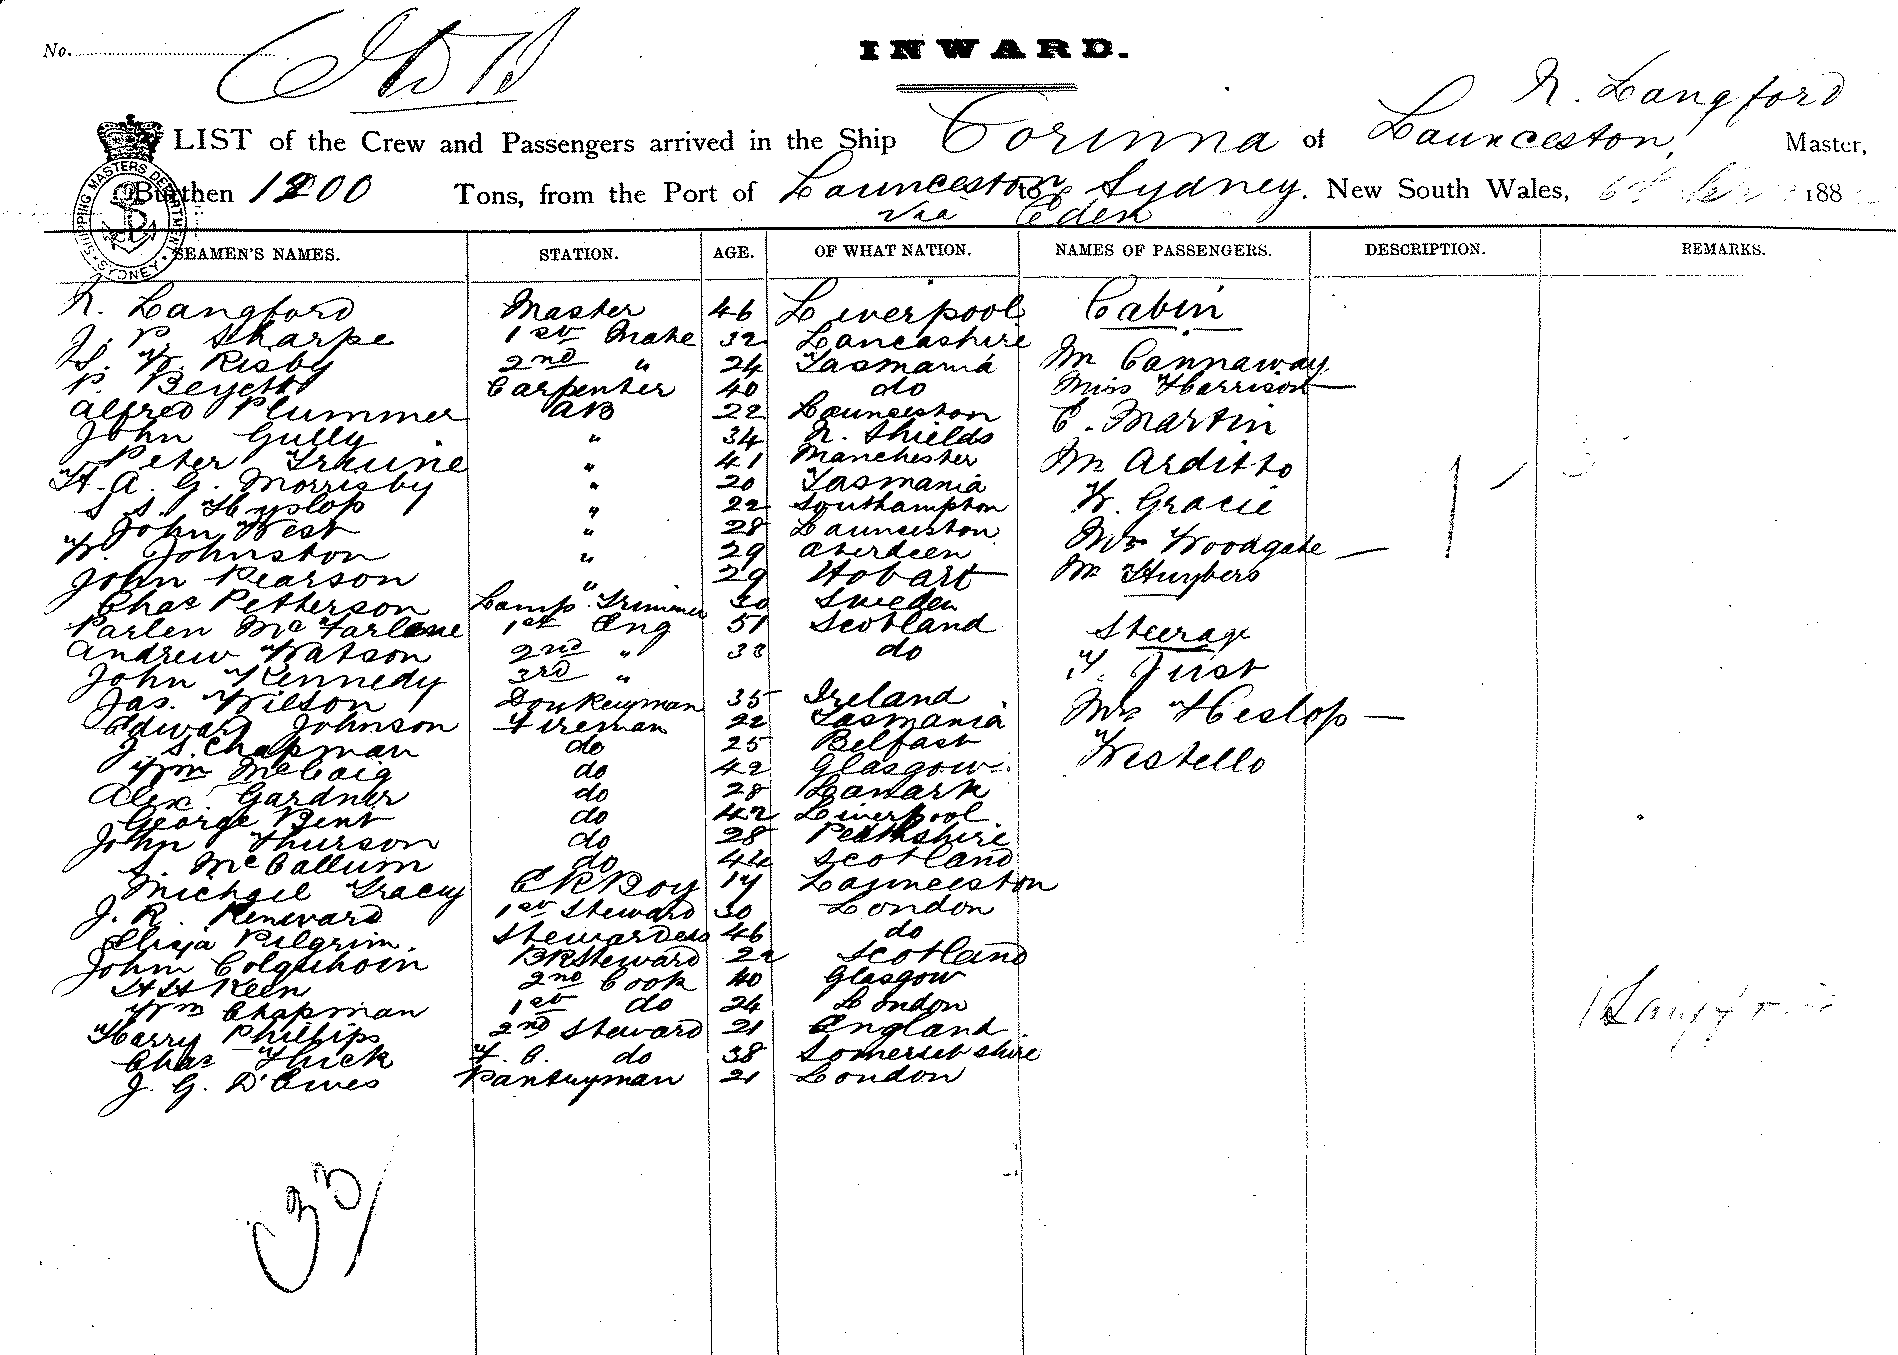 No.
INWARD.
N. Langford
LIST of the Crew and Passengers arrived in the Ship Corinna of Launceston, Master,
Burthen 1200 Tons, from the Port of Launceston to Sydney. New South Wales, 188
via Eden
SHIPPING MASTERS DEPARTMENT SYDNEY
SEAMEN'S NAMES. STATION. AGE. OF WHAT NATION. NAMES OF PASSENGERS. DESCRIPTION. REMARKS.
N. Langford Master 46 Liverpool Cabin
J. P. Sharpe 1st Mate 32 Lancashire
W. Risby 2nd " 24 Tasmania Mr Cannaway
P. Carpenter 40 do Miss Harrison
Alfred Plummer AB 22 Launceston C. Martin
John Gully " 34 N. Shields
Peter " 41 Manchester Mr Arditto
H. A. G. Morrisby " 20 Tasmania
S. S. Hyslop " 22 Southampton W. Gracie
John West " 28 Launceston
W. Johnston " 29 Aberdeen Mrs Woodgate
John Pearson " 29 Hobart Mr Huybers
Chas Petterson Lamp Trimmer 30 Sweden
Parlen McFarlane 1st Eng 51 Scotland Steerage
Andrew Watson 2nd " 38 do
John Kennedy 3rd " Just
Jas. Wilson Donkeyman 35 Ireland
Edward Johnson Fireman 22 Tasmania Mrs Heslop
J. S. Chapman do 25 Belfast
Wm McCaig do 42 Glasgow Westello
Alex. Gardner do 28 Lanark
George Bent do 42 Liverpool
John Thurson do 28 Perthshire
McCallum do 44 Scotland
Michael Tracey CK Boy 17 Launceston
J. R. Kenward 1st Steward 30 London
Eliza Pilgrim. Stewardess 46 do
John Colquhoun BK Steward 22 Scotland
H H Keen 2nd Cook 40 Glasgow
Wm Chapman 1st do 24 London
Harry Phillips 2nd Steward 21 England
Chas Thick F. C. do 38 Somersetshire
J. G. D'Ewes Pantryman 21 London
33